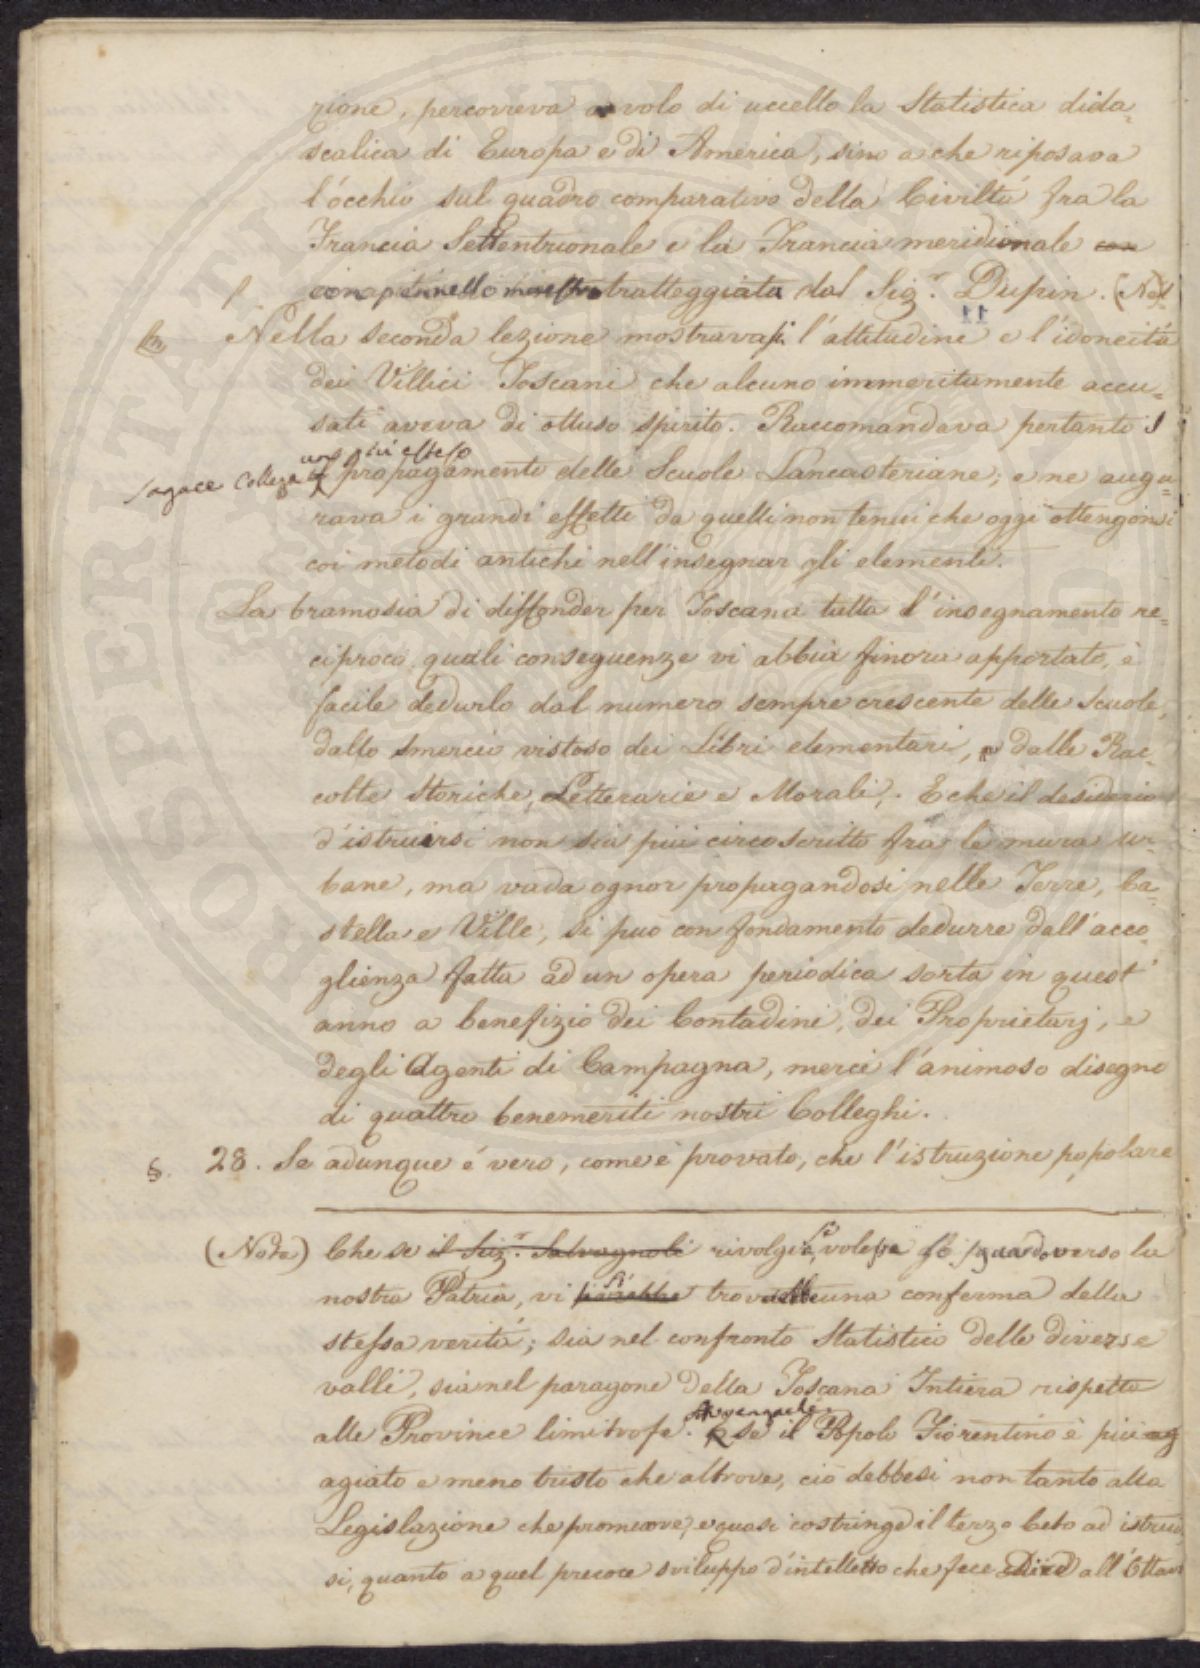 zione, percorreva a volo di uccello la Statistica dida=
scalica di Europa e di America, sino a che riposava
l'occhio sul quadro comparativo della Civiltà fra la
Francia Settentrionale e la Francia meridionale con
con pennello maestro tratteggiata dal Sig.r Dupin. (Not
Nella seconda lezione mostravasi l'attitudine e l'idoneità
dei Villici Toscani che alcuno immeritamente accu=
sati aveva di ottuso spirito. Raccomandava pertanto il
sagace Collega un più esteso propagamento delle Scuole Lancasteriane; e ne augu=
rava i grandi effetti da quelli non tenui che oggi ottengonsi
coi metodi antichi nell'insegnar gli elementi.
La bramosia di diffonder per Toscana tutta l'insegnamento re=
ciproco quali conseguenze vi abbia finora apportate, è
facile dedurlo dal numero sempre crescente delle Scuole,
dallo smercio vistoso dei Libri elementari, e dalle Rac=
colte Storiche, Letterarie e Morali. E che il desiderio
d'istruirsi non sia più circoscritto fra le mura ur=
bane, ma vada ognor propagandosi nelle Terre, Ca=
stella e Ville, si può con fondamento dedurre dall'acco=
glienza fatta ad un opera periodica sorta in quest'
anno a benefizio dei Contadini, dei Proprietarj, e
degli Agenti di Campagna, mercè l'animoso disegno
di quattro benemeriti nostri Colleghi.
§. 28. Se adunque è vero, come è provato, che l'istruzione popolare
(Nota) Che se il Sig.r Salvagnoli rivolger si volesse lo sguardo verso la
nostra Patria, vi si troverebbe una conferma della
stessa verità; sia nel confronto Statistico delle diverse
valli, sia nel paragone della Toscana Intiera rispetto
alle Province limitrofe. E se il Popolo Fiorentino è più ag
agiato e meno tristo che altrove, ciò debbesi non tanto alla
Legislazione che promuove, e quasi costringe il terzo Ceto ad istruir
si, quanto a quel precoce sviluppo d'intelletto che fece dire all'Ottav
PROSPERITATI PUBLICAE